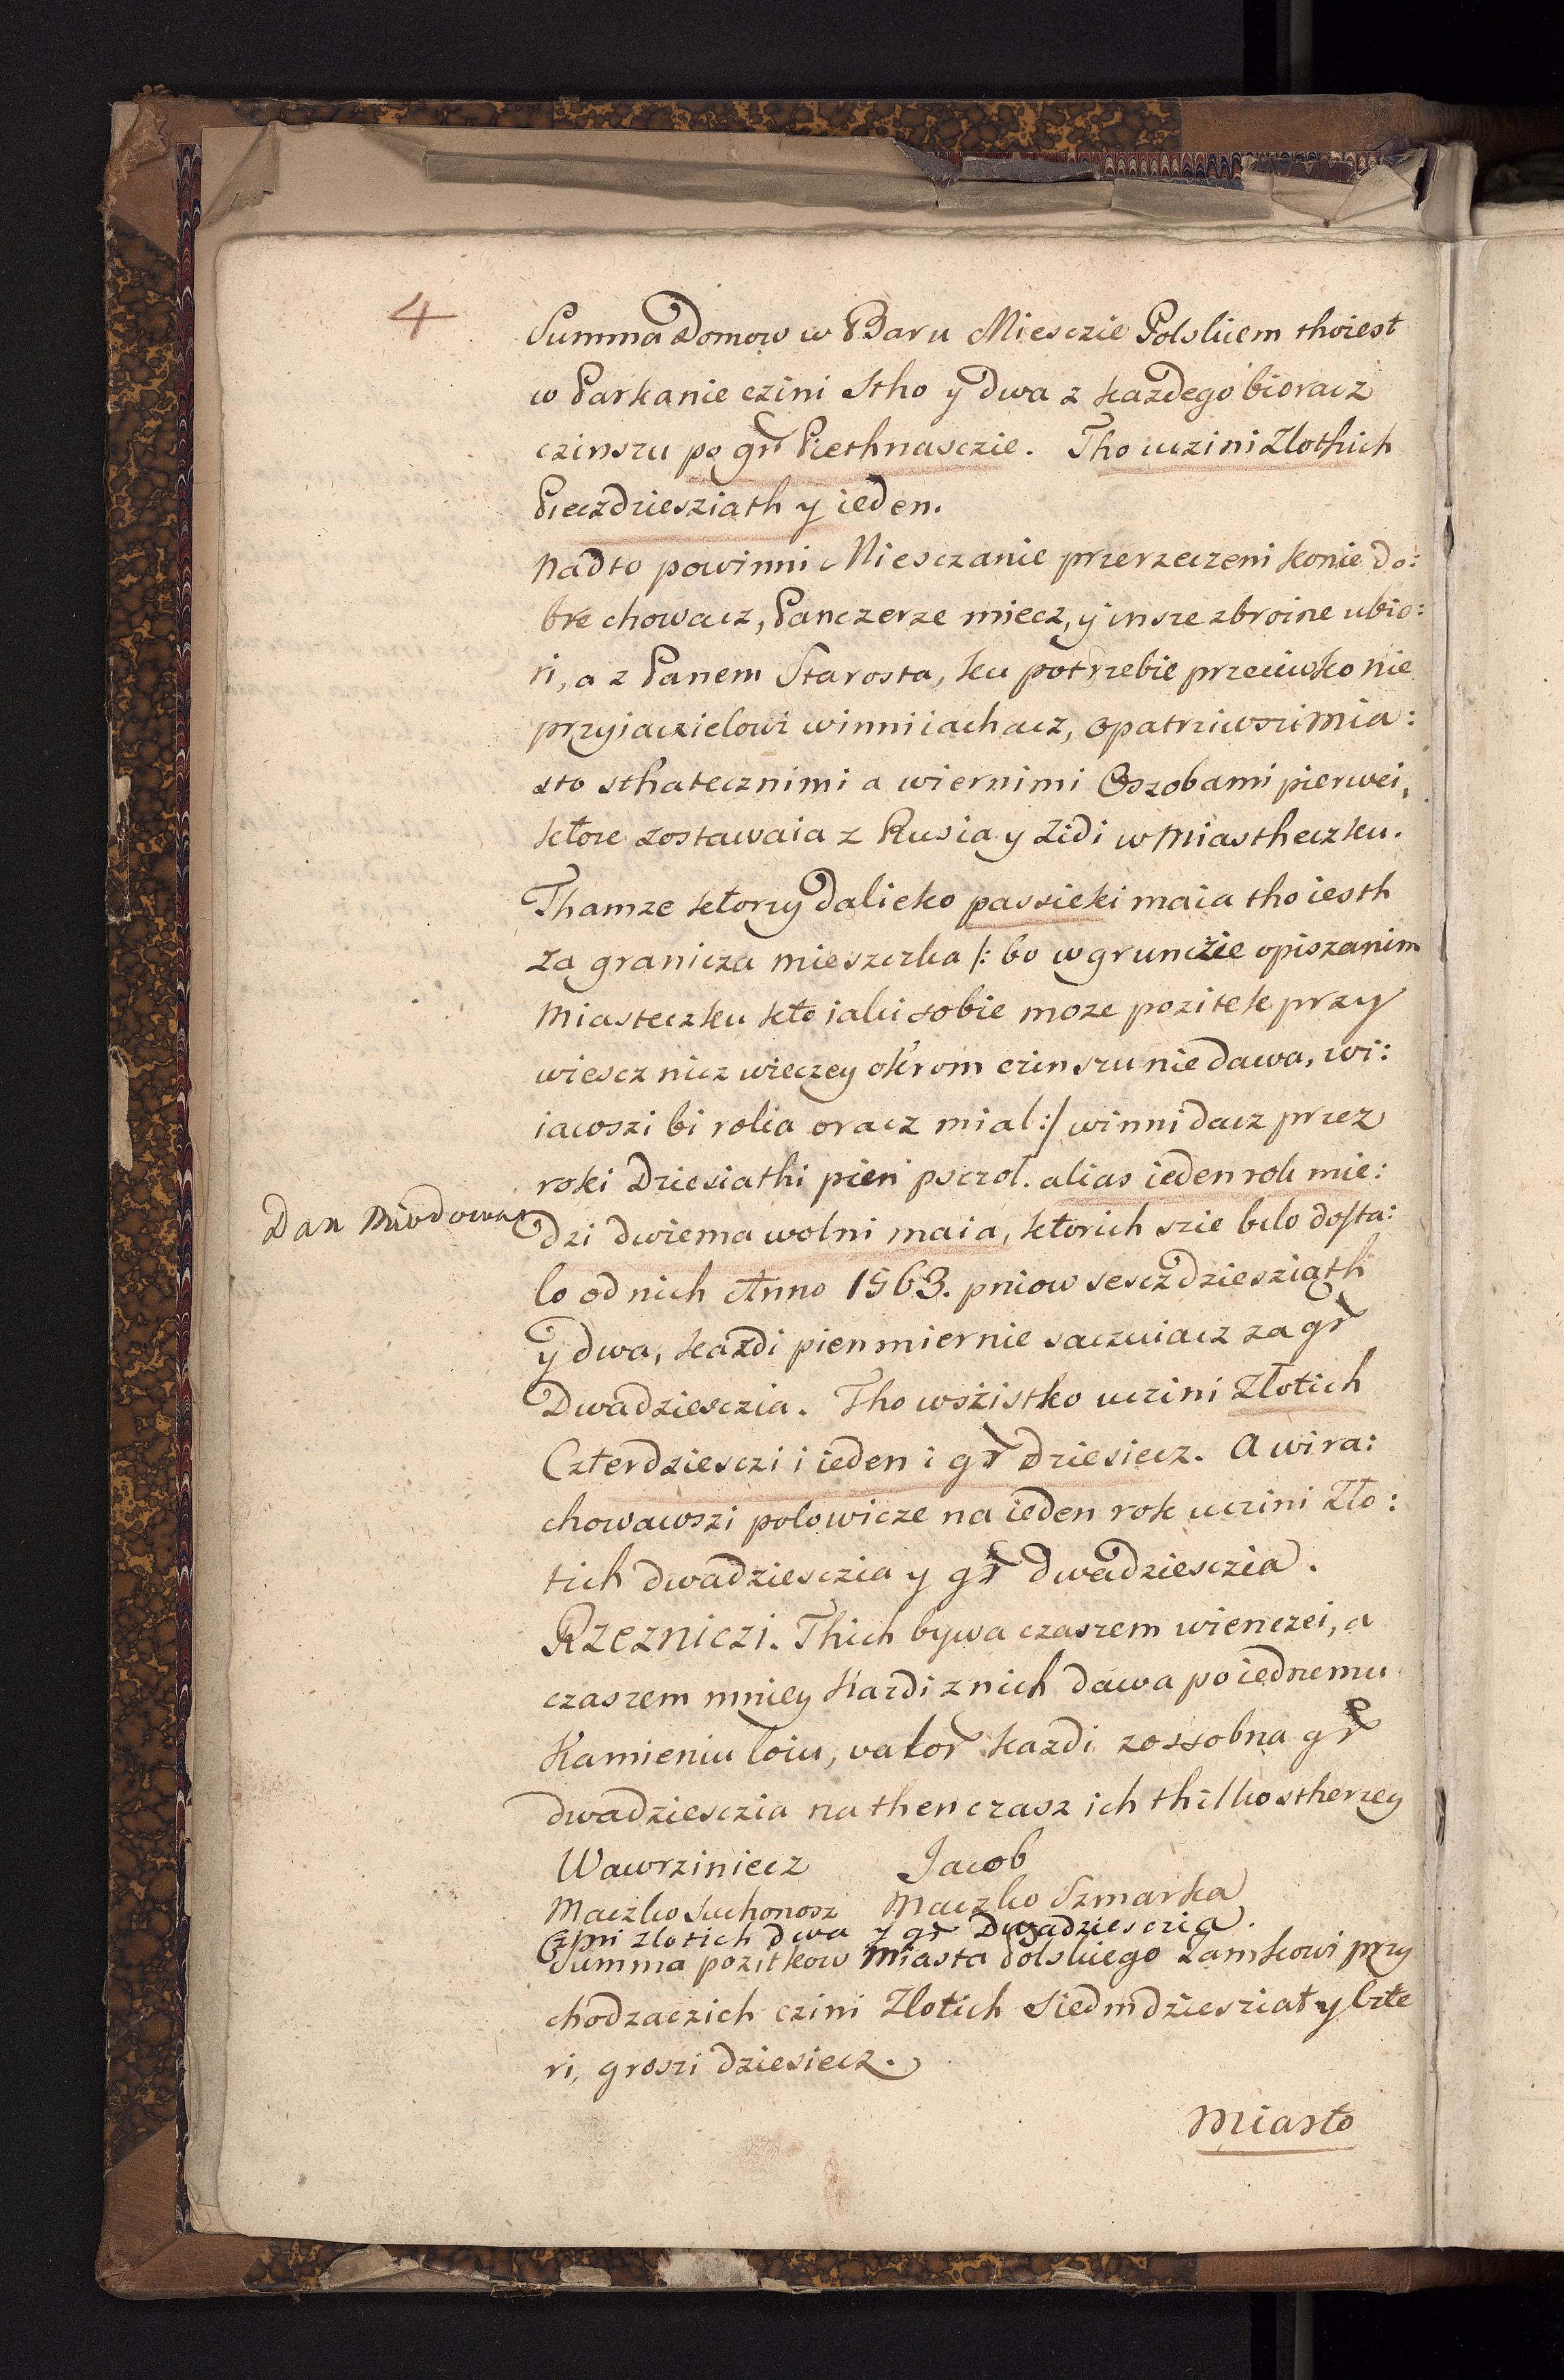 4
Summa Domow w Baru Miesczie Polskiem thoiest
w Parkanie czini Stho y dwa z każdego bioracz
czinszu po gr Piethnasczie. Tho uczini Zlothich
Pieczdziesziath y ieden.
Nadto powinni Miesczanie przerzeczeni konie do:
bre chowacz, Panczerze miecz, y insze zbroine ubio:
ri, a z Panem Starosta, ku potrzebie przeciwko nie
przyiaczielowi winni iachacz, opatrziwszi mia:
sto sthatecznimi a wiernimi Oszobami pierwei,
ktore zostawaia z Rusia y Zidi w Miastheczku.
Thamze ktorzy dalieko passieki maia tho iesth
za granicza mieszczka /: bo w gruncżie opiszanim
Miasteczku kto iaki sobie moze pozitek przy
wiescz nicz wieczey okrom czinszu nie dawa, wi:
iawszi bi rolia oracz mial :/ winni dacz przez
roki Dziesiathi pien pszczol. alias ieden rok mie:
Dan Miodowa
dzi dwiema wolni maia, ktorich szie bilo dosta:
lo od nich Anno 1563. pniow sesczdziesziąth
y dwa, każdi pien miernie saczuiacz za gr
Dwadziesczia. Tho wszistko uczini Złotich
Czterdziesczi i ieden i gr dziesiecz. A wira:
chowawszi polowicze na ieden rok uczini Zło:
tich dwadziesczia y gr dwadziesczia.
Rzezniczi. Thich bywa czaszem wienczei, a
czaszem mniey Kazdi z nich dawa po iednemu
Kamieniu loiu, valor kazdi zossobna gr
dwadziesczia na then czasz ich thilko stherzey
Wawrziniecz Jacob
Maczko Suchonosz Maczko Szmarka
Czini zlotich dwa y gr Dwadziesczia.
Summa pozitkow Miasta Polskiego Zamkowi przy
chodzaczich czini Zlotich Siedmdziesziat y Czte
ri, groszi dziesiecz.
Miasto